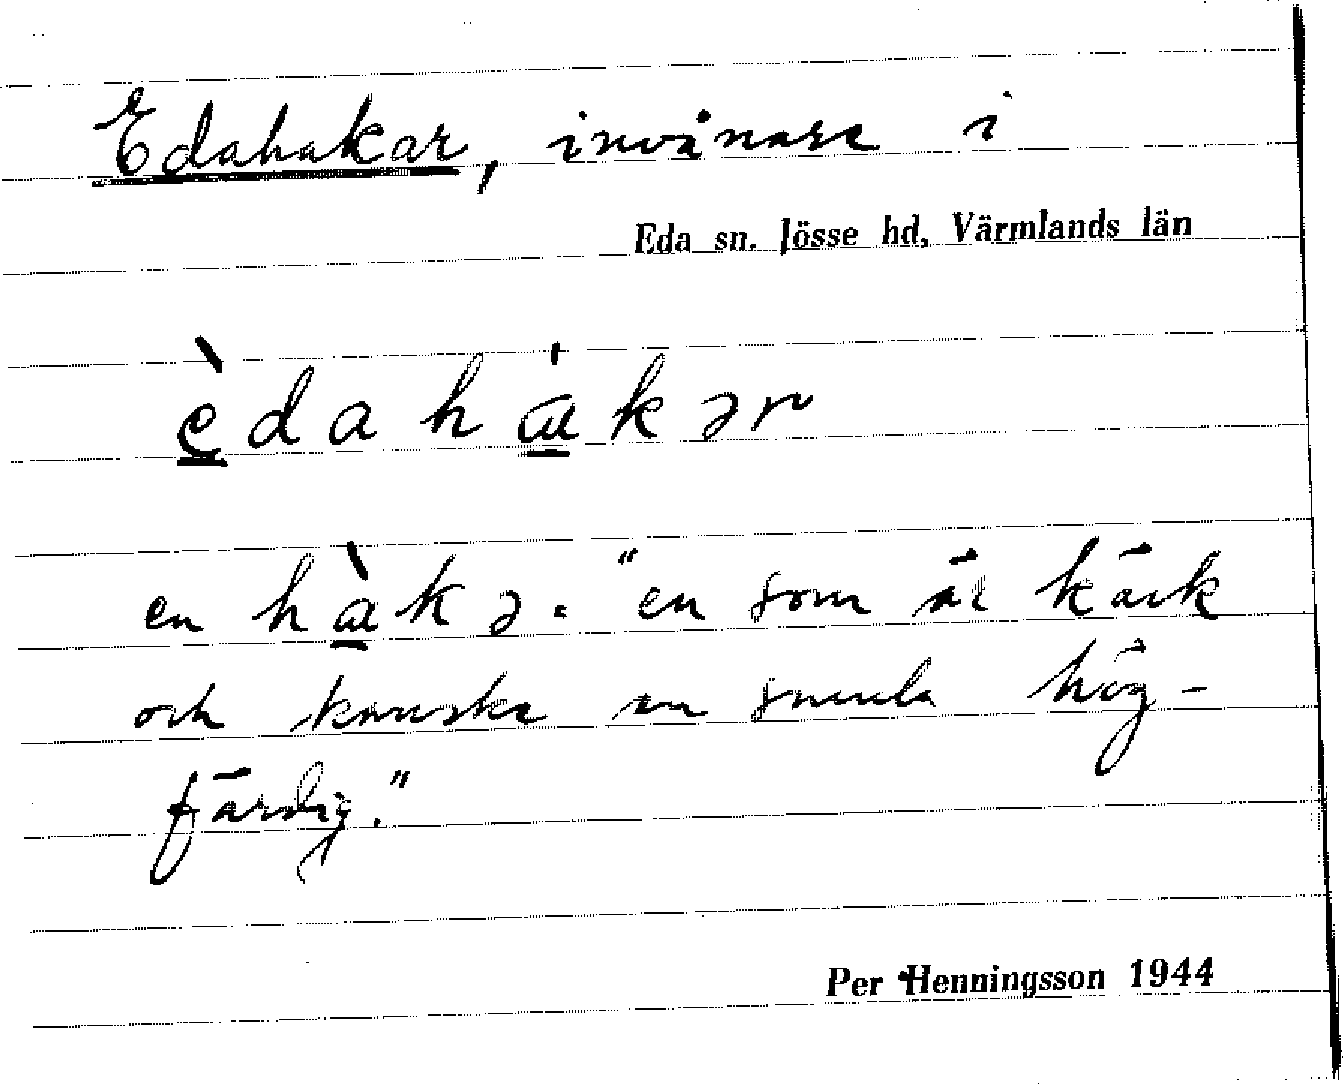 Edahakar, invånare i
Eda sn. Jösse hd, Värmlands län
èdahɑ̍kər
en hɑ̀kə. "en som är käck
och kanske en smula hög-
färdig."
Per Henningsson 1944